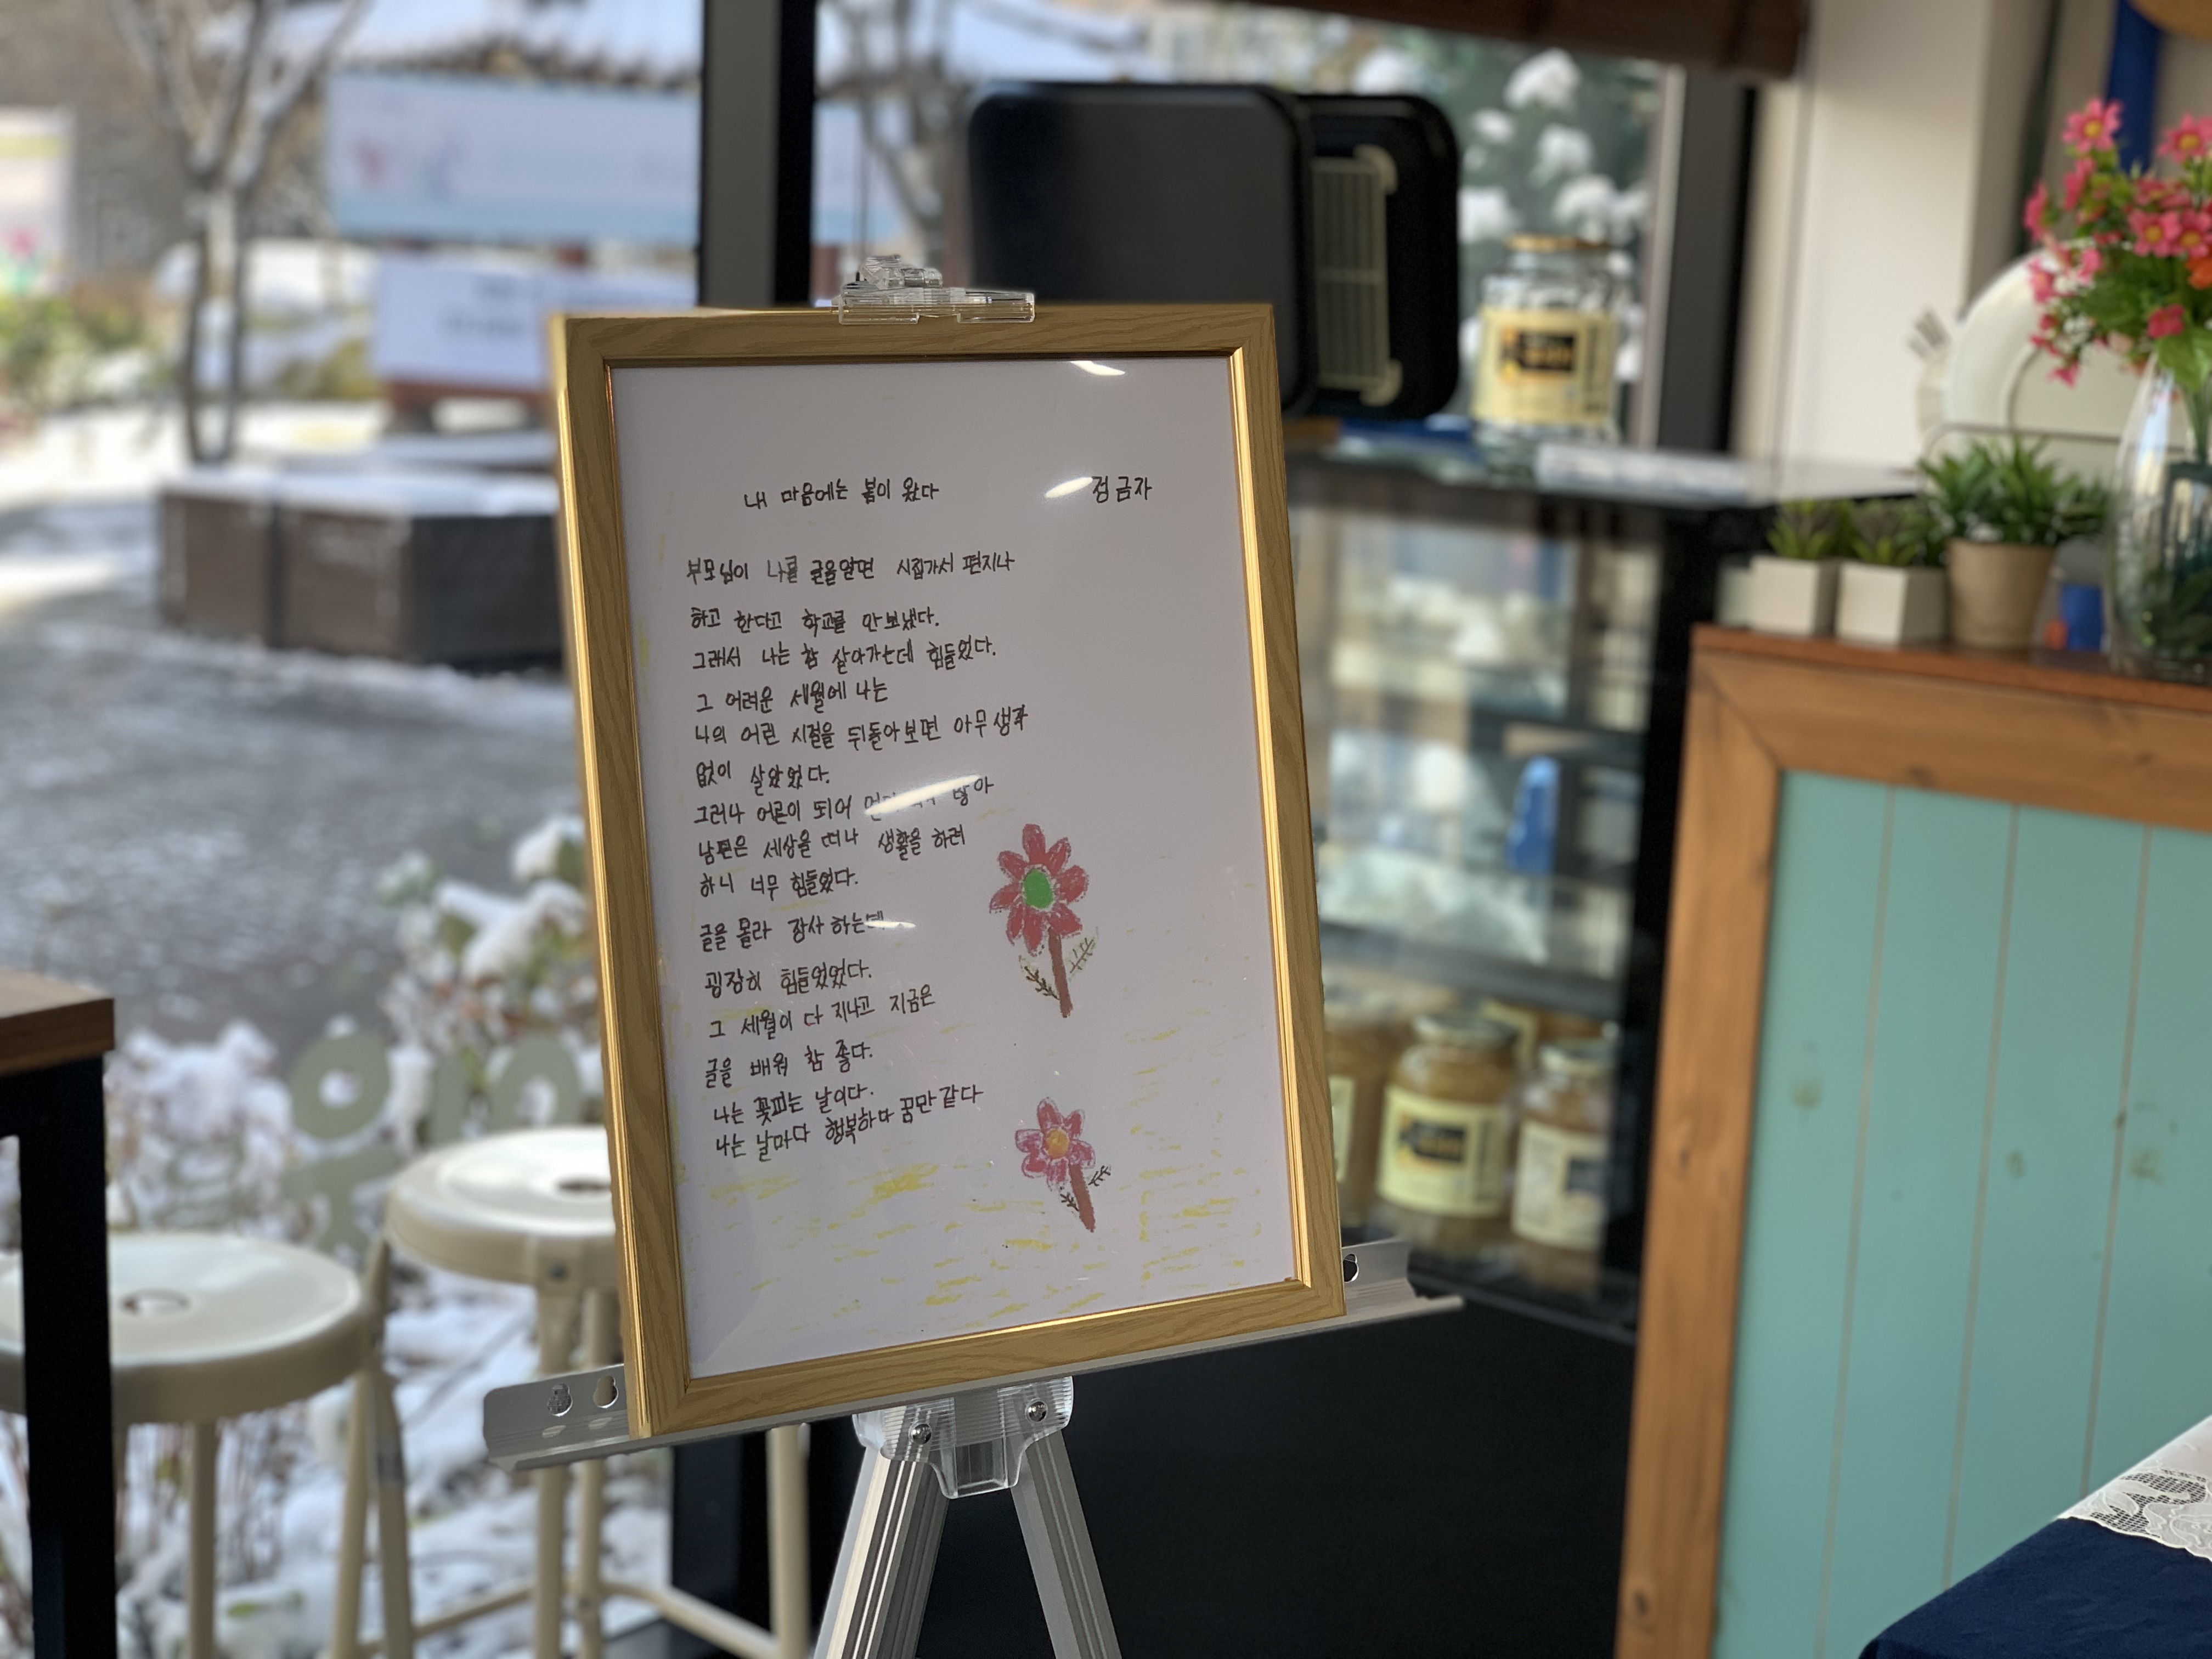 내 마음에는 봄이 왔다 정금자
부모님이 나를 글을알면 시집가서 편지나
하고 한다고 학교를 안보냈다.
그래서 나는 참 살아가는데 힘들었다.
그 어려운 세월에 나는
나의 어린 시절을 뒤돌아보면 아무생각
없이 살았었다.
그러나 어른이 되어
남편은 세상을 떠나 생활을 하려
하니 너무 힘들었다.
글을 몰라 장사 하는데
굉장히 힘들었었다.
그 세월이 다 지나고 지금은
글을 배워 참 좋다.
나는 꽃피는 날이다.
나는 날마다 행복하다 꿈만같다